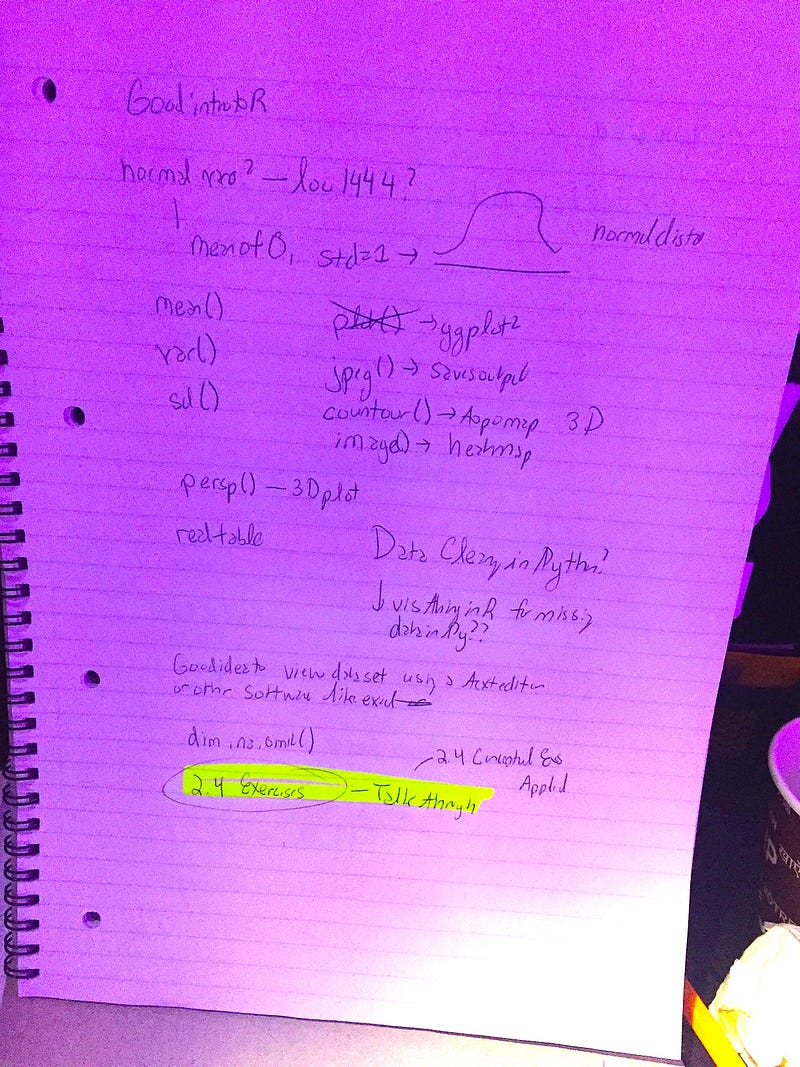 Good intro to R
normal ? — low 1444 ?
mean of 0, std=1 → normal dist
mean() plot() → ggplot2
var() jpeg() → saves output
sd() countour() → topomap 3D
image() → heatmap
persp() — 3D plot
read table
Data Cleaning in Python?
↓ vis thing in R for missing
data in Py??
Good idea to view dataset using a text editor
or other software like excel
dim, na.omit()
2.4 Conceptual Exs
2.4 Exercises — Talk through Applied